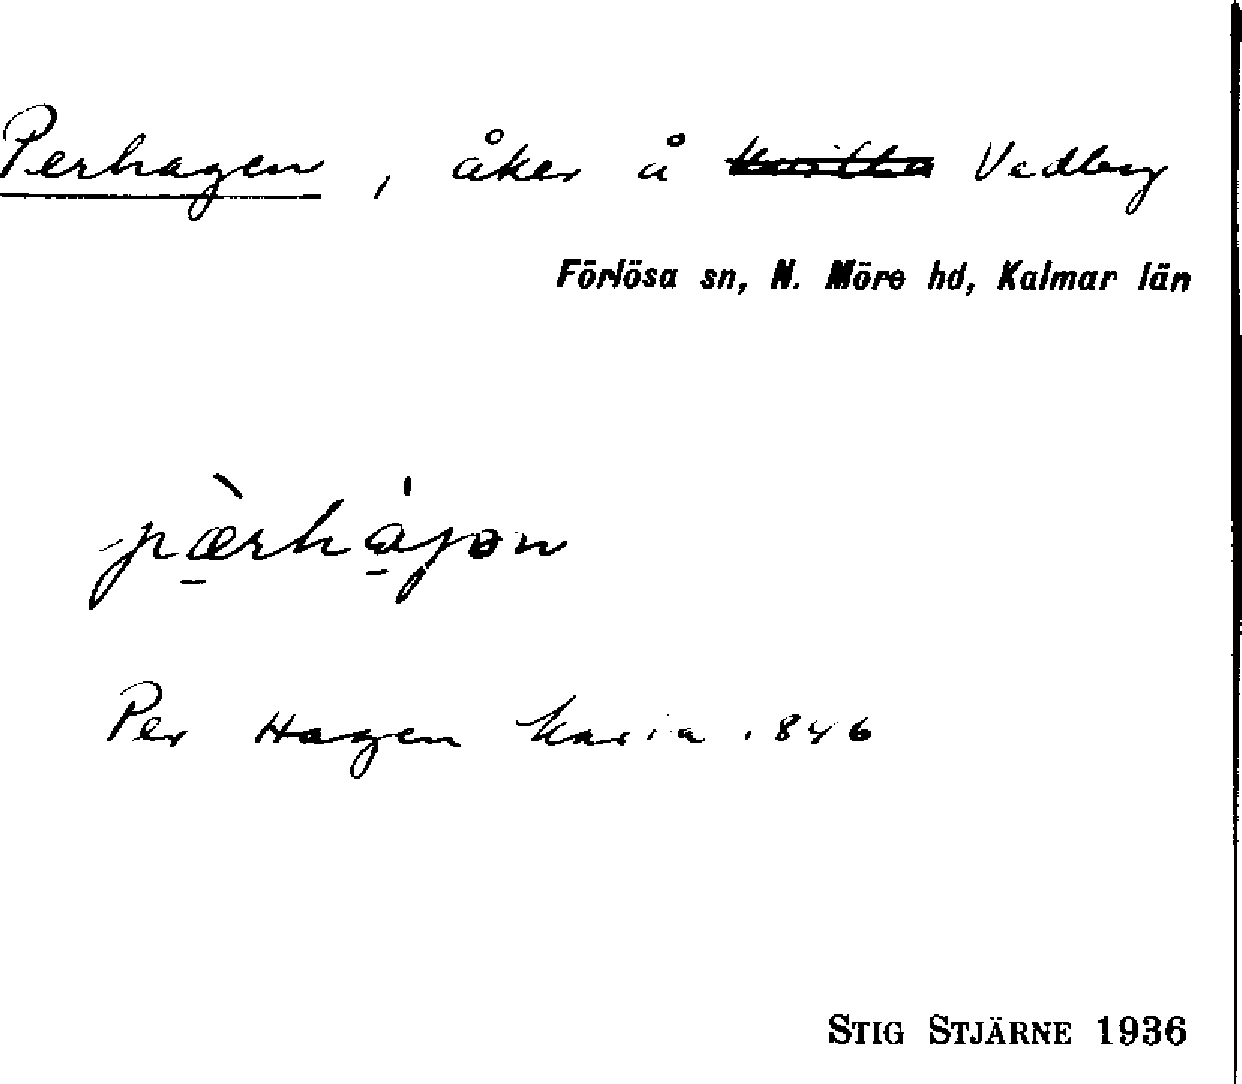 Perhagen, åker å Vedby
Förlösa sn, N. Möre hd, Kalmar län
pæ̠̀rhà̠jən
Per Hagen karta 1846
STIG STJÄRNE 1936